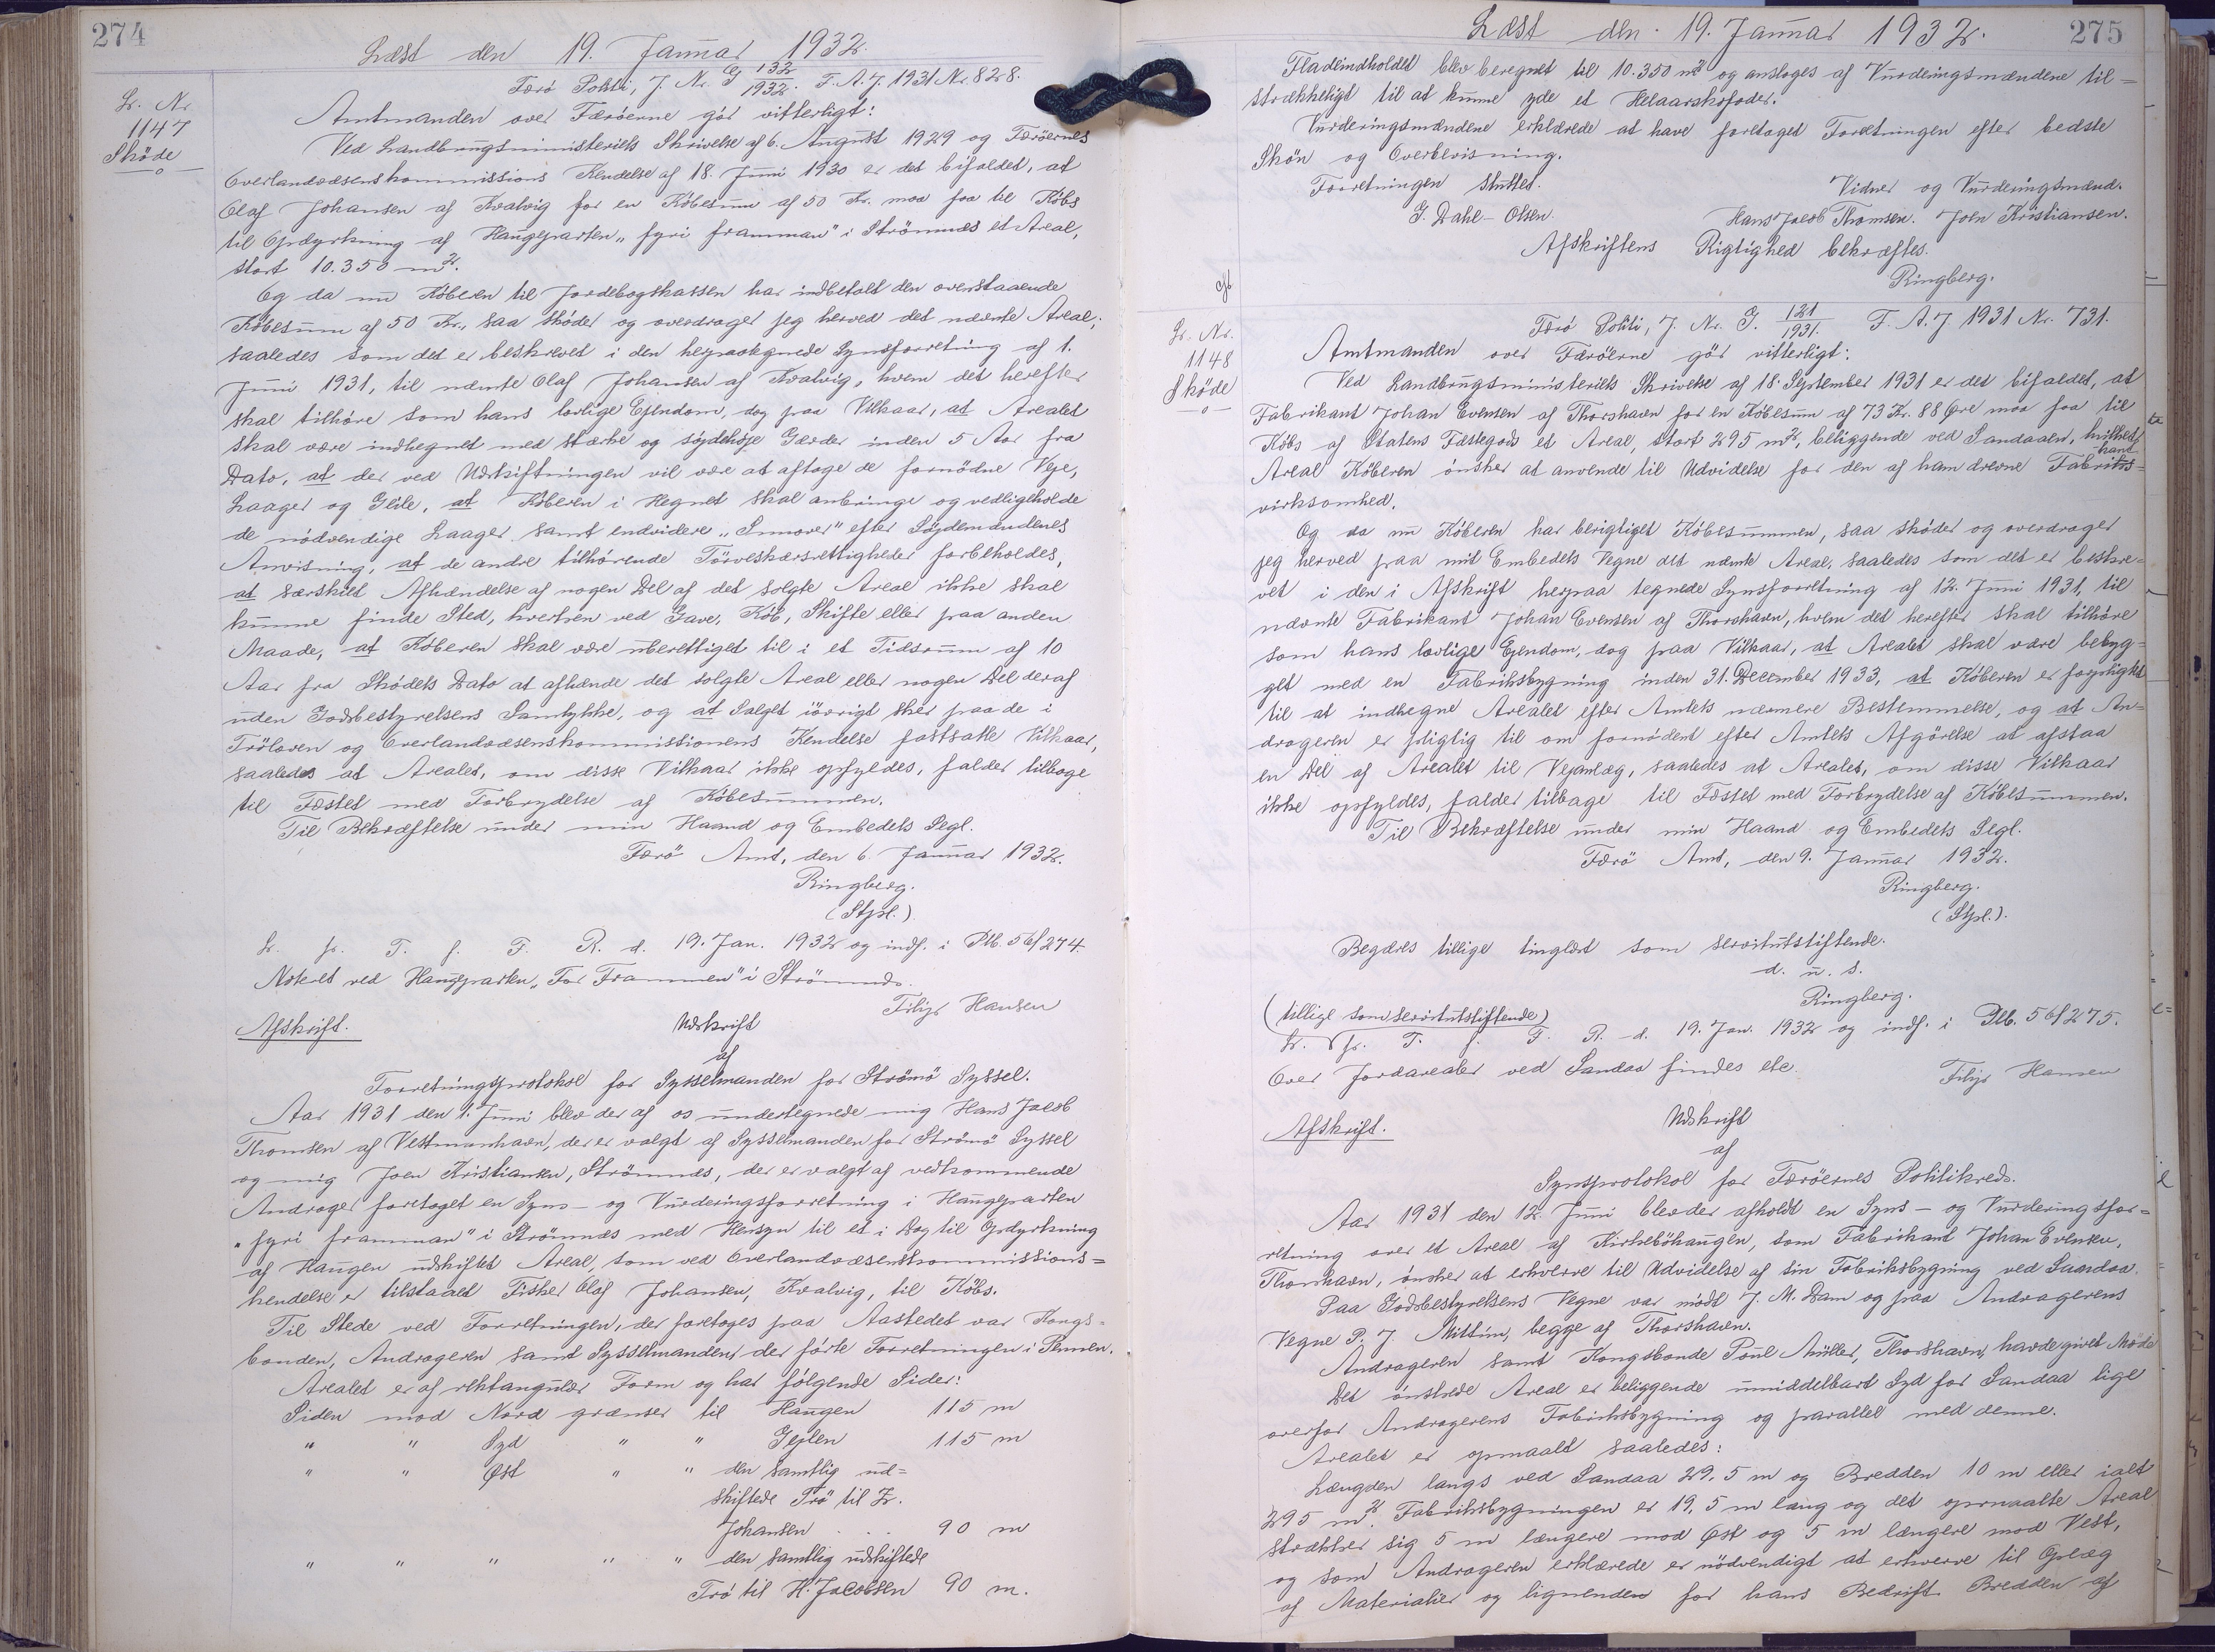 274
Læst den 19. Januar 1932.
Færö Politi, J. Nr. G 132/1932. F. A. J. 1931 Nr. 828.
Lr. Nr.
1147
Sköde
Amtmanden over Færöerne gör vitterligt:
Ved Landbrugsministeriets Skrivelse af 6. August 1929 og Færöernes
Overlandvæsenskommissions Kendelse af 18. Juni 1930 er det bifaldet, at
Olaf Johansen af Kvalvig for en Köbesum af 50 Kr. maa faa til Köbs
til Opdyrkning af Haugeparten "fyri framman" i Strömnæs et Areal,
stort 10.350 m².
Og da nu Köberen til Jordebogskassen har indbetalt den overstaaende
Köbesum af 50 Kr., saa sköder og overdrager jeg herved det nævnte Areal,
saaledes som det er beskrevet i den herpaategnede Synsforretning af 1.
Juni 1931, til nævnte Olaf Johansen af Kvalvig, hvem det herefter
skal tilhöre som hans lovlige Ejendom, dog paa Vilkaar, at Arealet
skal være indhegnet med stærke og söjdehöje Gærder inden 5 Aar fra
Dato, at der ved Udskiftningen vil være at aftage de fornödne Veje,
Laager og Geile, at Köberen i Hegnet skal anbringe og vedligeholde
de nödvendige Laager samt endvidere "Smover" efter Söjdemændenes
Anvisning, at de andre tilhörende Törveskærsrettigheder forbeholdes,
at særskilt Afhændelse af nogen Del af det solgte Areal ikke skal
kunne finde Sted, hverken ved Gave, Köb, Skifte eller paa anden
Maade, at Köberen skal være uberettiget til i et Tidsrum af 10
Aar fra Sködets Dato at afhænde det solgte Areal eller nogen Del deraf
uden Godsbestyrelsens Samtykke, og at Salget iövrigt sker paa de i
Tröloven og Overlandvæsenskommissionens Kendelse fastsatte Vilkaar,
saaledes at Arealet, om disse Vilkaar ikke opfyldes, falder tilbage
til Fæstet med Forbrydelse af Köbesummen.
Til Bekræftelse under min Haand og Embedets Segl.
Færö Amt, den 6. Januar 1932.
Ringberg.
(Stpl.)
Lr. fr. T. f. F. R. d. 19. Jan. 1932 og indf. i Plb. 56/274.
Noteret ved Haugeparten "For Frammen" i Strömnæs.
Filip Hansen
Afskrift.
Udskrift
af
Forretningsprotokol for Sysselmanden for Strömö Syssel.
Aar 1931 den 1. Juni blev der af os undertegnede mig Hans Jacob
Thomsen af Vestmanhavn, der er valgt af Sysselmanden for Strömö Syssel
og mig Joen Kristiansen, Strömnæs, der er valgt af vedkommende
Andrager foretaget en Syns- og Vurderingsforretning i Haugeparten
"fyri framman" i Strömnæs med Hensyn til et i Dag til Opdyrkning
af Haugen udskiftet Areal, som ved Overlandvæsenskommissions=
kendelse er tilstaaet Fisker Olaf Johansen, Kvalvig, til Köbs.
Til Stede ved Forretningen, der foretoges paa Aastedet var Kongs=
bonden, Andrageren samt Sysselmanden der förte Forretningen i Pennen.
Arealet er af rektangulær Form og har fölgende Sider:
Siden mod Nord grænser til Haugen 115 m
" " Syd " " Gejlen 115 m
" " Öst " " den samtlig ud=
skiftede Trö til Z.
Johansen . . . 90 m
" " " " " den samtlig udskiftede
Trö til H. Jacobsen 90 m.
275
Læst den 19. Januar 1932.
Fladeindholdet blev beregnet til 10.350 m² og ansloges af Vurderingsmændene til=
strækkeligt til at kunne yde et Helaarskofoder.
Vurderingsmændene erklærede at have foretaget Forretningen efter bedste
Skön og Overbevisning.
Forretningen sluttet.
Vidner og Vurderingsmænd.
G. Dahl-Olsen. Hans Jacob Thomsen. Joen Kristiansen.
Afskriftens Rigtighed bekræftes.
Ringberg.
Færö Politi, J. Nr. G. 121/1931. F. A. J. 1931 Nr. 731.
Lr. Nr.
1148
Sköde
Amtmanden over Færöerne gör vitterligt:
Ved Landbrugsministeriets Skrivelse af 18. September 1931 er det bifaldet, at
Fabrikant Johan Evensen af Thorshavn for en Köbesum af 73 Kr. 88 Öre maa faa til
Köbs af Statens Fæstegods et Areal, stort 295 m², beliggende ved Sandaaen, hvilket
Areal Köberen önsker at anvende til Udvidelse for den af ham drevne Fabriks=
virksomhed.
Og da nu Köberen har berigtiget Köbesummen, saa sköder og overdrager
jeg herved paa mit Embedets Vegne det nævnte Areal, saaledes som det er beskre=
vet i den i Afskrift herpaa tegnede Synsforretning af 12. Juni 1931, til
nævnte Fabrikant Johan Evensen af Thorshavn, hvem det herefter skal tilhöre
som hans lovlige Ejendom, dog paa Vilkaar, at Arealet skal være bebyg=
get med en Fabriksbygning inden 31. December 1933, at Köberen er forpligtet
til at indhegne Arealet efter Amtets nærmere Bestemmelse, og at An=
drageren er pligtig til om fornödent efter Amtets Afgörelse at afstaa
en Del af Arealet til Vejanlæg, saaledes at Arealet, om disse Vilkaar
ikke opfyldes, falder tilbage til Fæstet med Forbrydelse af Köbesummen.
Til Bekræftelse under min Haand og Embedets Segl.
Færö Amt, den 9. Januar 1932.
Ringberg.
(Stpl.).
Begæres tillige tinglæst som servitutstiftende.
d. u. s.
Ringberg.
(tillige som servitutstiftende)
Lr. fr. T. f. F. R. d. 19. Jan. 1932 og indf. i Plb. 56/275.
Over Jordarealer ved Sandaa findes etc.
Filip Hansen
Afskrift.
Udskrift
af
Synsprotokol for Færöernes Politikreds.
Aar 1931 den 12. Juni blev der afholdt en Syns- og Vurderingsfor=
retning over et Areal af Kirkeböhaugen, som Fabrikant Johan Evensen,
Thorshavn, önsker at erhverve til Udvidelse af sin Fabriksbygning ved Sandaa.
Paa Godsbestyrelsens Vegne var mödt J. M. Dam og paa Andragerens
Vegne P. J. Mittún, begge af Thorshavn.
Andrageren samt Kongsbonde Poul Müller, Thorshavn, havde givet Möde
Det önskede Areal er beliggende umiddelbart Syd for Sandaa lige
overfor Andragerens Fabriksbygning og parallel med denne.
Arealet er opmaalt saaledes:
Længden langs ved Sandaa 29,5 m og Bredden 10 m eller ialt
295 m². Fabriksbygningen er 19,5 m lang og det opmaalte Areal
strækker sig 5 m længere mod Öst og 5 m længere mod Vest,
og som Andrageren erklærede er nödvendigt at erhverve til Oplæg
af Materialier og lignende for hans Bedrift. Bredden af